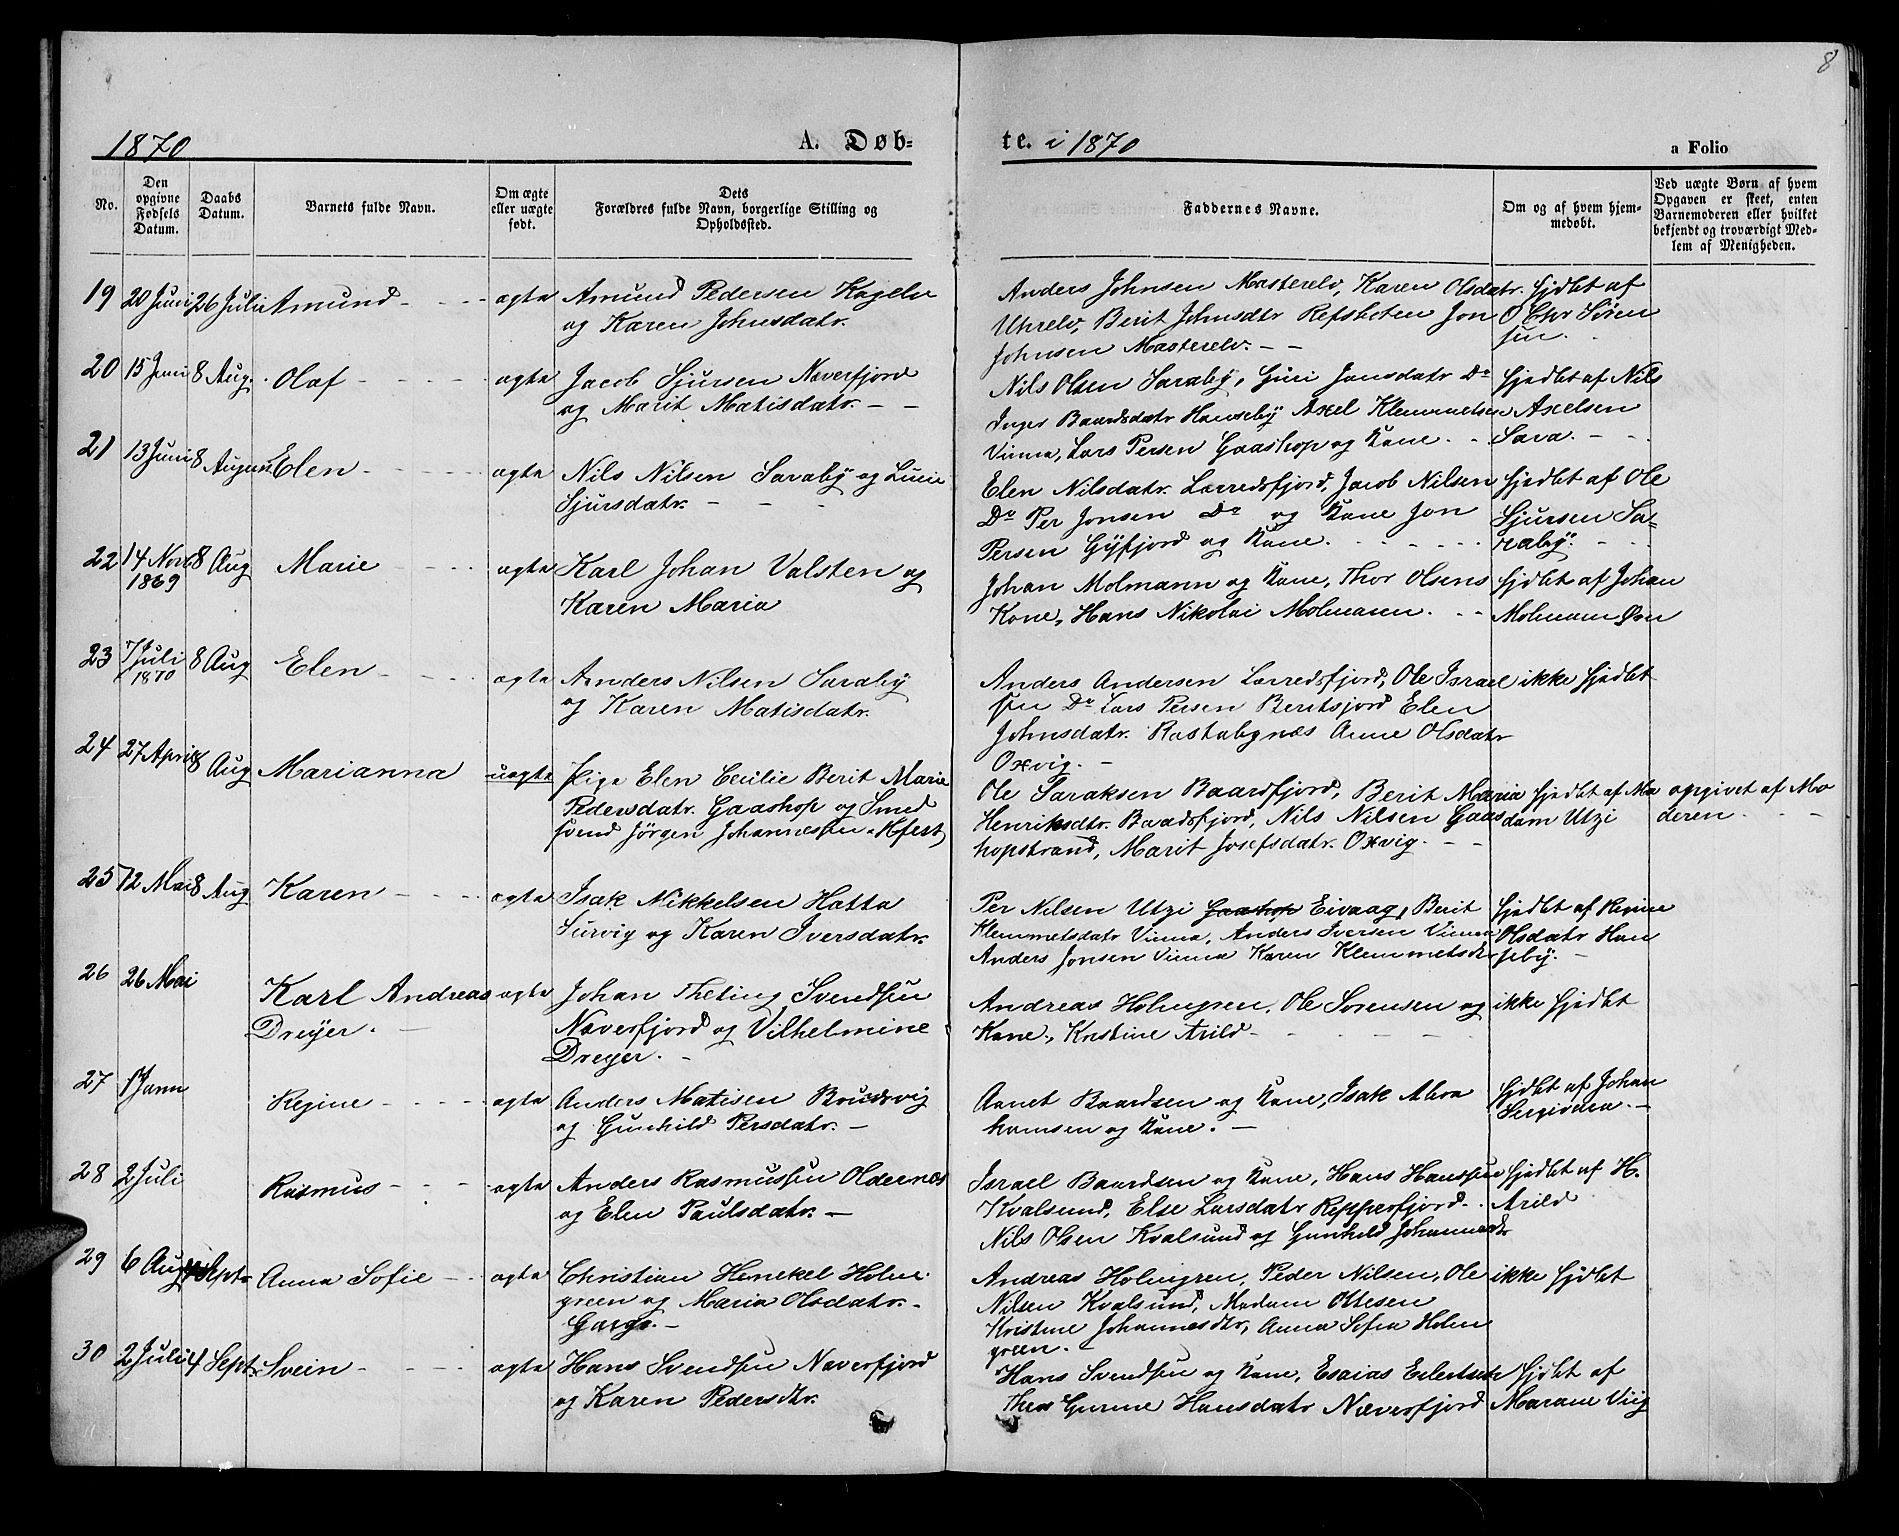 8
1870
A. Døb-
te. i 1870
a Folio
No.
Den
opgivne
Fødsels
Datum.
Daabs
Datum.
Barnets fulde Navn.
Om ægte
eller uægte
født.
Dets
Forældres fulde Navn, borgerlige Stilling og
Opholdssted.
Faddernes Navne.
Om og af hvem hjem-
medøbt.
Ved uægte Børn af hvem
Opgaven er skeet, enten
Barnemoderen eller hvilket
bekjendt og troværdigt Med-
lem af Menigheden.
19 20 Juni 26 Juli Amund - ægte Amund Pedersen Kogelv
og Karen Johnsdatr.
Anders Johnsen Masterelv, Karen Olsdatr.
Uhrelv, Berit Johnsdtr Refsboten Jon
Johnsen Masterelv. - -
hjdbt af
O Chr Sören
sen.
20 15 Juni 8 Aug. Olaf - ægte Jacob Sjursen Næverfjord
og Marit Matisdatr. - -
Nils Olsen Saraby, Guri Jonsdatr Do
Inger Baardsdatr Hanseby Axel Klemmetsen
Vinna, Lars Persen Gaashop og Kone.
hjedbt af Nils
Axelsen
Sara. -
21 13 Juni 8 August Elen - ægte Nils Nilsen Saraby og Lucie
Sjursdatr. - -
Elen Nilsdatr. Lærredsfjord, Jacob Nilsen
Do Per Jonsen Do og Kone Jon
Persen Gÿfjord og Kone.
hjedbt af Ole
Sjursen Sa-
raby. -
22 14 Novb 1869 8 Aug Marie - ægte Karl Johan Valsten og
Karen Maria
Johan Molmann og Kone, Thor Olsens
Kone, Hans Nikolai Molmann.
hjdbt af Johan
Molmann Øen
23 7 Juli 1870 8 Aug Elen - ægte Anders Nilsen Saraby
og Karen Matisdatr.
Anders Andersen Lærredsfjord, Ole Israel
sen Do Lars Persen Beritsjord Elen
Johnsdatr. Rastabynæs Anne Olsdatr
Oxvig. -
ikke hjedbt
24 27 April 8 Aug Marianna uægte Pige Elen Cecilie Berit Maria
Pedersdatr. Gaashop og Smed
svend Jörgen Johannessen Hfest
Ole Saraksen Baardfjord, Berit Maria
Henriksdtr. Baadsfjord, Nils Nilsen Gaas
hopstrand, Marit Josefsdatr. Oxvig. - -
hjedbt af Ma
dam Utzi
opgivet af Mo
deren.
25 12 Mai 8 Aug Karen - ægte Isak Nikkelsen Hatta
Survig og Karen Iversdatr.
Per Nilsen Utzi Gaashop Eivaag, Berit
Klemmetsdatr Vinna, Anders Iversen Vinna
Anders Jonsen Vinna Karen Klemmetsdtr
hjedbt af Regine
Olsdatr Han
seby. -
26 26 Mai Karl Andreas ægte Johan Theting Svendsen
Dreyer. - Næverfjord og Vilhelmine
Dreyer. -
Andreas Holmgren, Ole Sörensen og
Kone, Kristine Arild -
ikke hjedbt
27 1 Janu Regine - ægte Anders Matisen Brudsvig
og Gunhild Persdatr. -
Annet Baardsen og Kone, Isak Abra
hamsen og Kone. -
hjdbt af Johan
28 2 Juli Rasmus - ægte Anders Rasmussen Oldernæs
og Elen Paulsdatr. -
Israel Baardsen og Kone, Hans Hanssen
Kvalsund, Else Larsdatr Repperfjord.
Nils Olsen Kvalsund og Gunhild Johannesdtr
hjedbt af H.
Arild
29 6 Aug 4 Septr Anna Sofie - ægte Christian Henckel Holm
green og Maria Olsdatr. -
Gargo. -
Andreas Holmgren, Peder Nilsen, Ole
Nilsen Kvalsund, Madam Ottesen
Kristine Johannesdtr, Anna Sofia Holm
green. -
ikke hjdbt
30 2 Juli 4 Sept. Svein - ægte Hans Svendsen Næverfjord
og Karen Pedersdtr.
Hans Svendsen og Kone, Esaias Eilertsen
Gurine Hansdatr Næverfjord
hjdbt af
Marane Viig